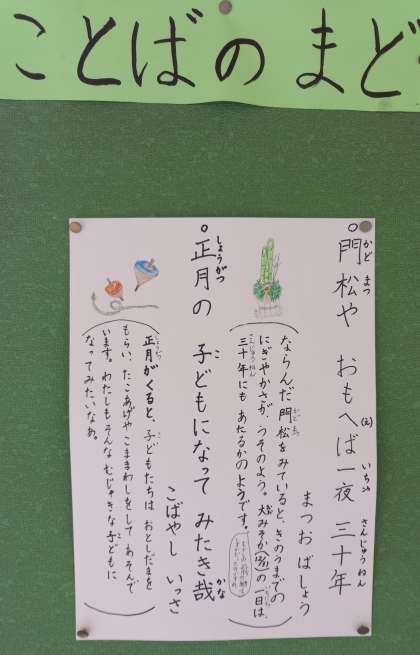 ことばのまど
。門松や おもへば一夜 三十年
まつお ばしょう
ならんだ門松をみていると、きのうまでの
にぎやかさが、うそのよう。大みそか(12/31)の一日は、
三十年にも あたるかのようです。
。正月の 子どもになって みたき哉
こばやし いっさ
正月がくると、子どもたちは おとしだまを
もらい、たこあげや こままわしをして あそんで
います。わたしも そんな むじゃきな 子どもに
なってみたいなあ。